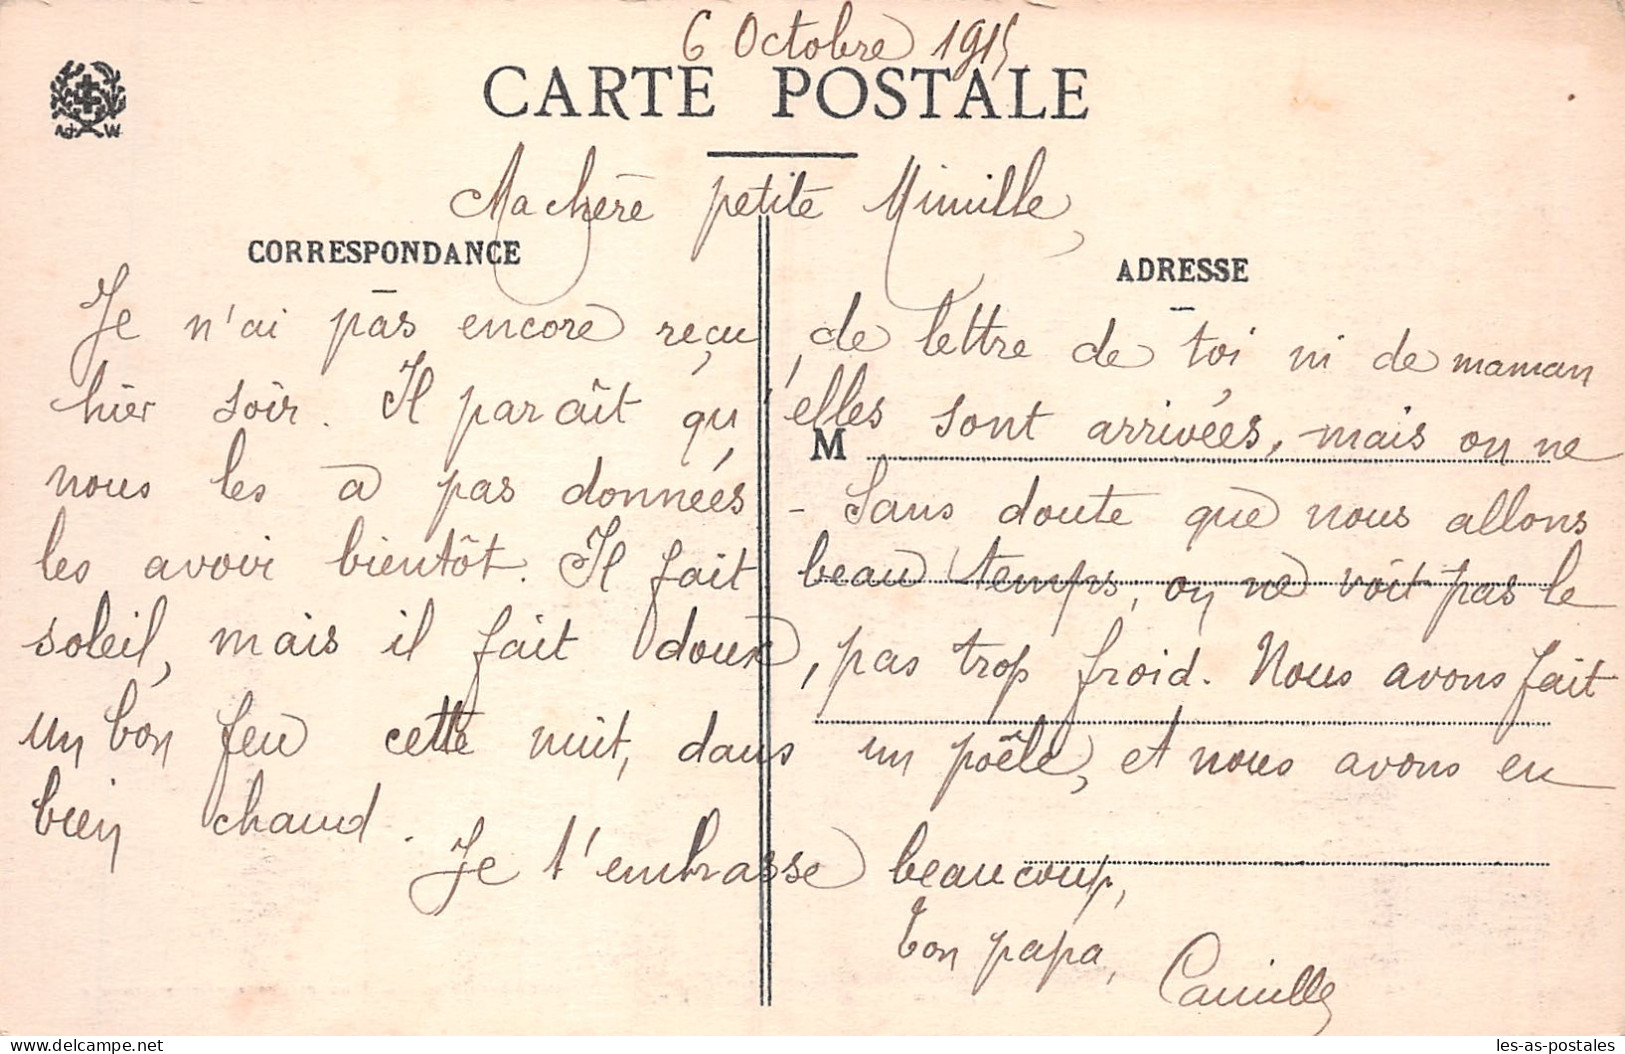 6 Octobre 1915
CARTE POSTALE
Ma chère petite Mimille,
CORRESPONDANCE
ADRESSE
Je n'ai pas encore reçu, de lettre de toi ni de maman
hier soir. Il paraît qu'elles sont arrivées, mais on ne
M
nous les a pas données. - Sans doute que nous allons
les avoir bientôt. Il fait beau temps, on ne voit pas le
soleil, mais il fait doux, pas trop froid. Nous avons fait
un bon feu cette nuit, dans un poêle, et nous avons eu
bien chaud.
Je t'embrasse beaucoup,
Ton papa,
Camille
les-as-postales
delcampe.net